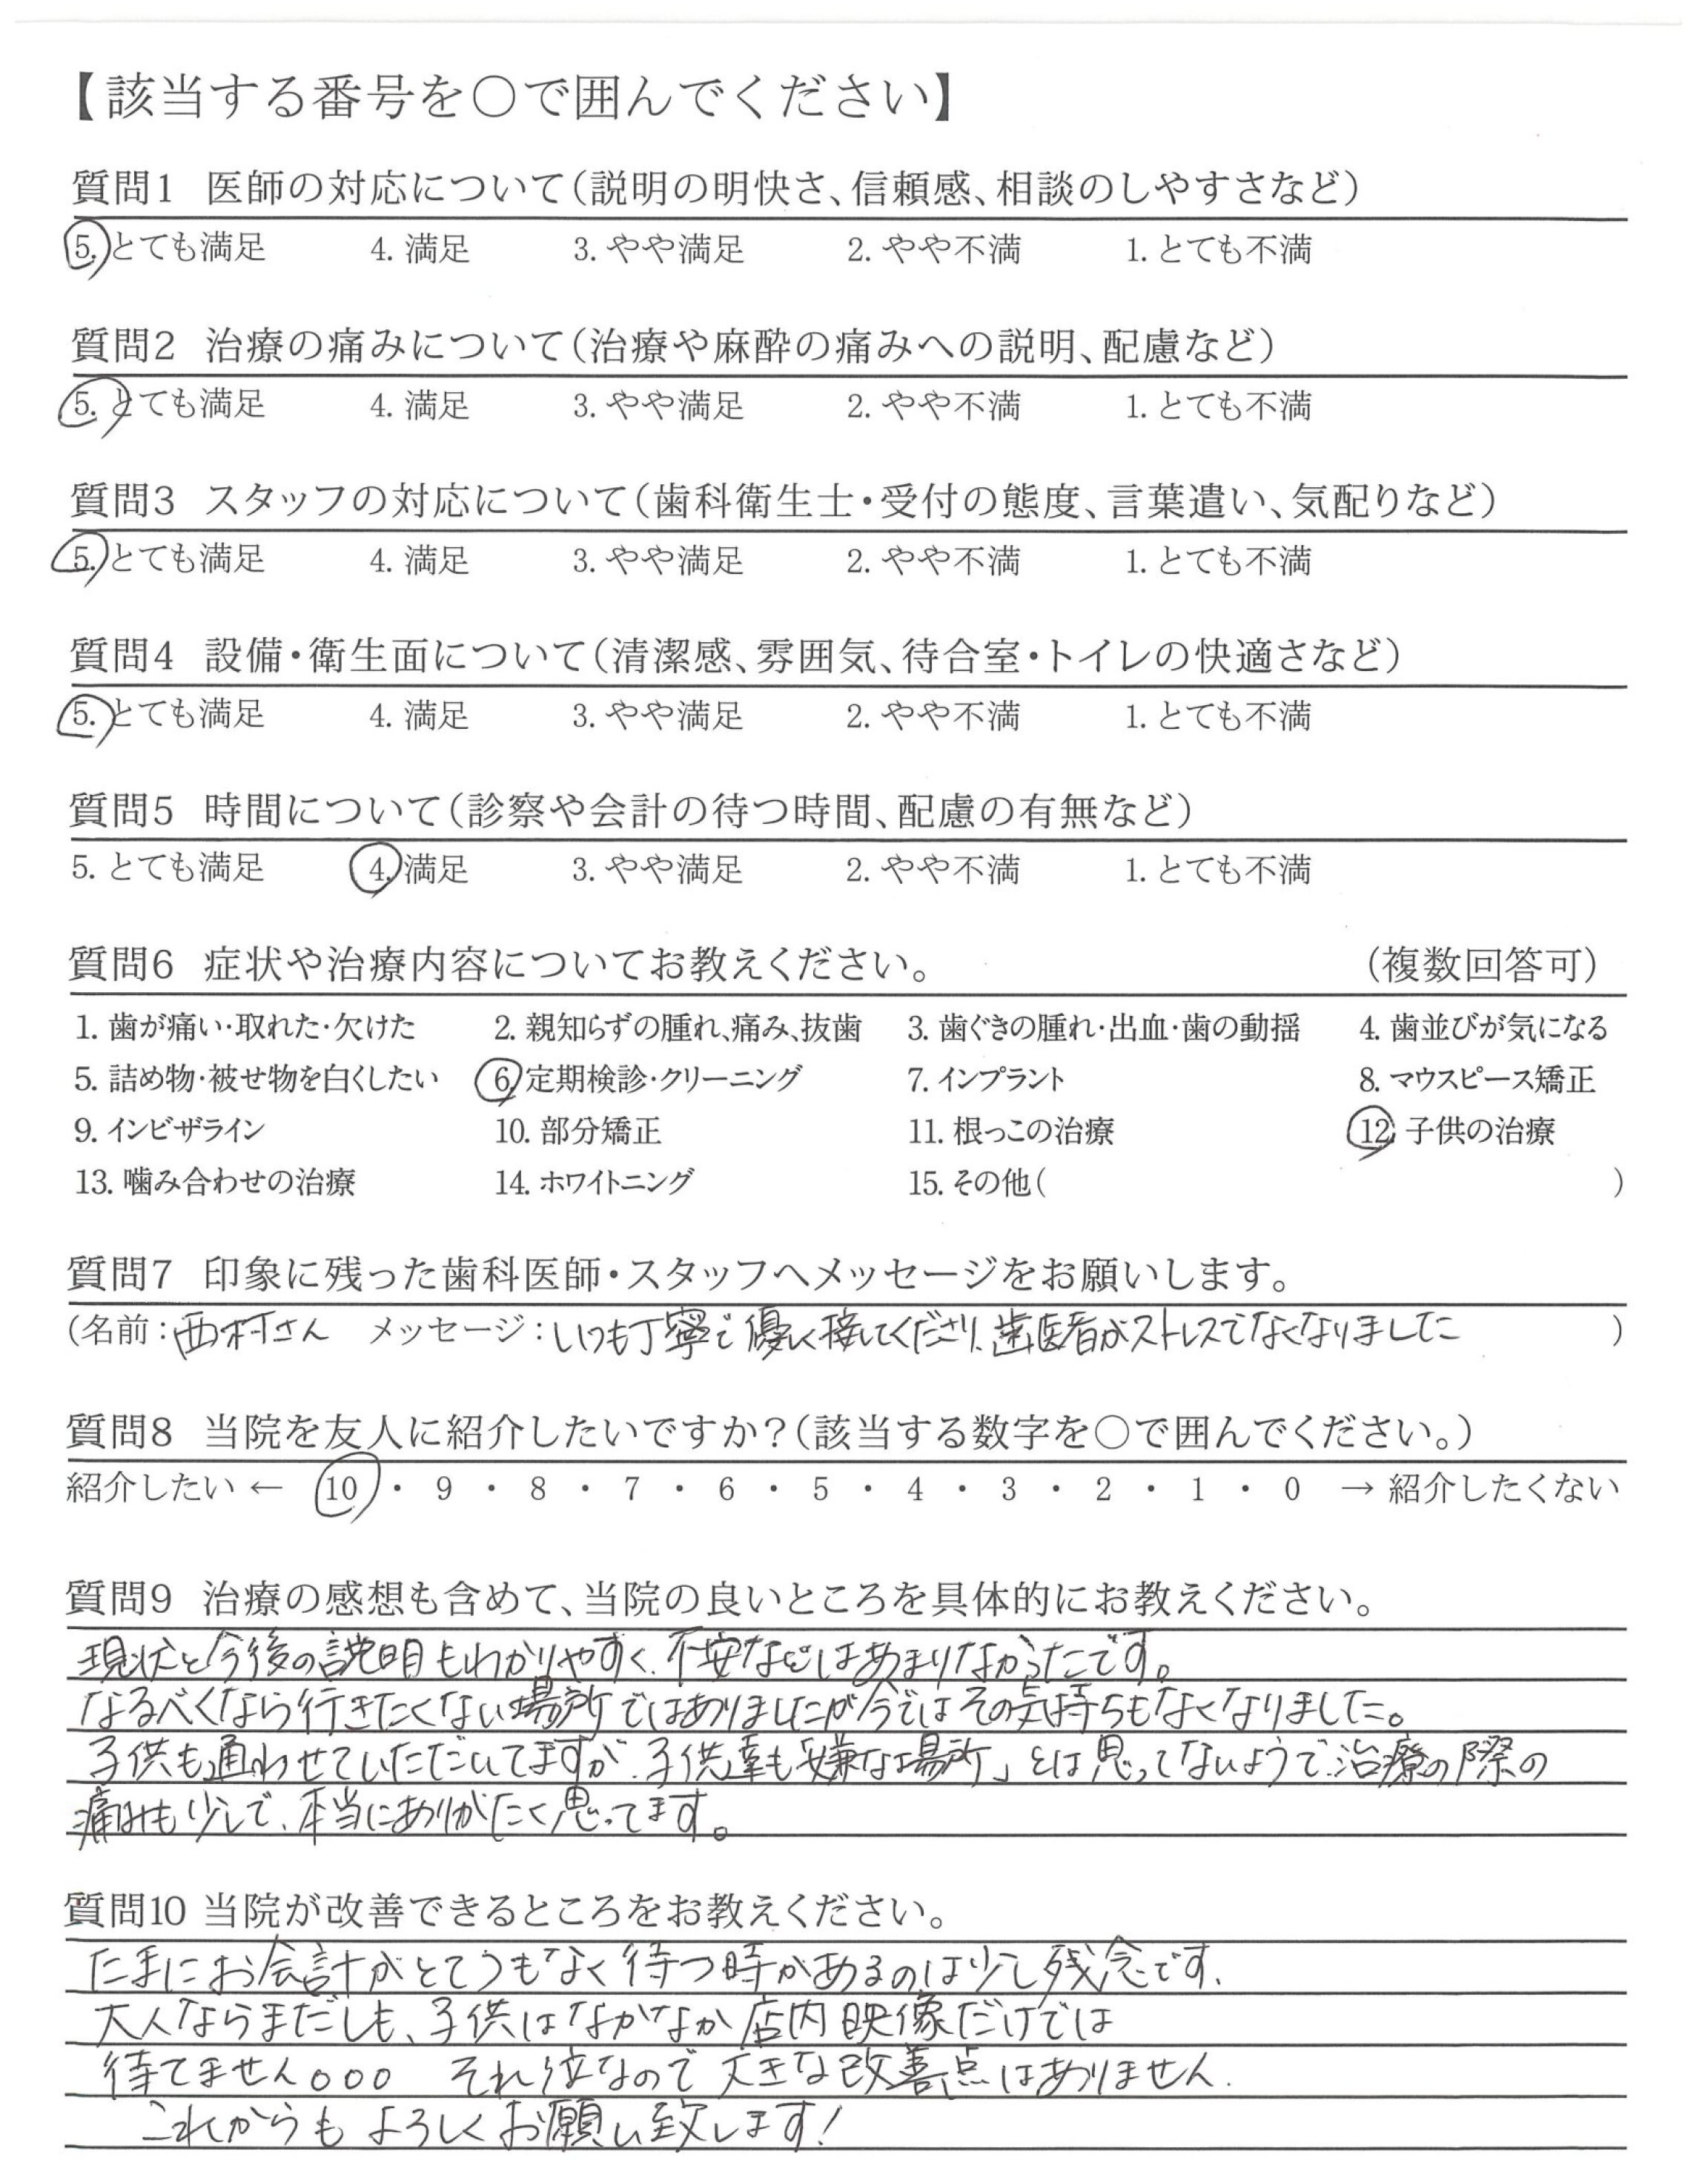 【該当する番号を○で囲んでください】
質問1 医師の対応について(説明の明快さ、信頼感、相談のしやすさなど)
5. とても満足 4. 満足 3. やや満足 2. やや不満 1. とても不満
質問2 治療の痛みについて(治療や麻酔の痛みへの説明、配慮など)
5. とても満足 4. 満足 3. やや満足 2. やや不満 1. とても不満
質問3 スタッフの対応について(歯科衛生士・受付の態度、言葉遣い、気配りなど)
5. とても満足 4. 満足 3. やや満足 2. やや不満 1. とても不満
質問4 設備・衛生面について(清潔感、雰囲気、待合室・トイレの快適さなど)
5. とても満足 4. 満足 3. やや満足 2. やや不満 1. とても不満
質問5 時間について(診察や会計の待つ時間、配慮の有無など)
5. とても満足 4. 満足 3. やや満足 2. やや不満 1. とても不満
質問6 症状や治療内容についてお教えください。 (複数回答可)
1. 歯が痛い・取れた・欠けた 2. 親知らずの腫れ、痛み、抜歯 3. 歯ぐきの腫れ・出血・歯の動揺 4. 歯並びが気になる
5. 詰め物・被せ物を白くしたい 6. 定期検診・クリーニング 7. インプラント 8. マウスピース矯正
9. インビザライン 10. 部分矯正 11. 根っこの治療 12. 子供の治療
13. 噛み合わせの治療 14. ホワイトニング 15. その他( )
質問7 印象に残った歯科医師・スタッフへメッセージをお願いします。
(名前:西村さん メッセージ:いつも丁寧で優しく接してくださり、歯医者がストレスでなくなりました )
質問8 当院を友人に紹介したいですか?(該当する数字を○で囲んでください。)
紹介したい ← 10 ・ 9 ・ 8 ・ 7 ・ 6 ・ 5 ・ 4 ・ 3 ・ 2 ・ 1 ・ 0 → 紹介したくない
質問9 治療の感想も含めて、当院の良いところを具体的にお教えください。
現状と今後の説明もわかりやすく、不安などはあまりなかったです。
なるべくなら行きたくない場所ではありましたが今ではその気持ちもなくなりました。
子供も通わせていただいてますが、子供達も「嫌な場所」とは思ってないようで治療の際の
痛みも少しで、本当にありがたく思ってます。
質問10 当院が改善できるところをお教えください。
たまにお会計がとてつもなく待つ時があるのは少し残念です、
大人ならまだしも、子供はなかなか店内映像だけでは
待てません。。。 それ位なので大きな改善点はありません.
これからもよろしくお願い致します!